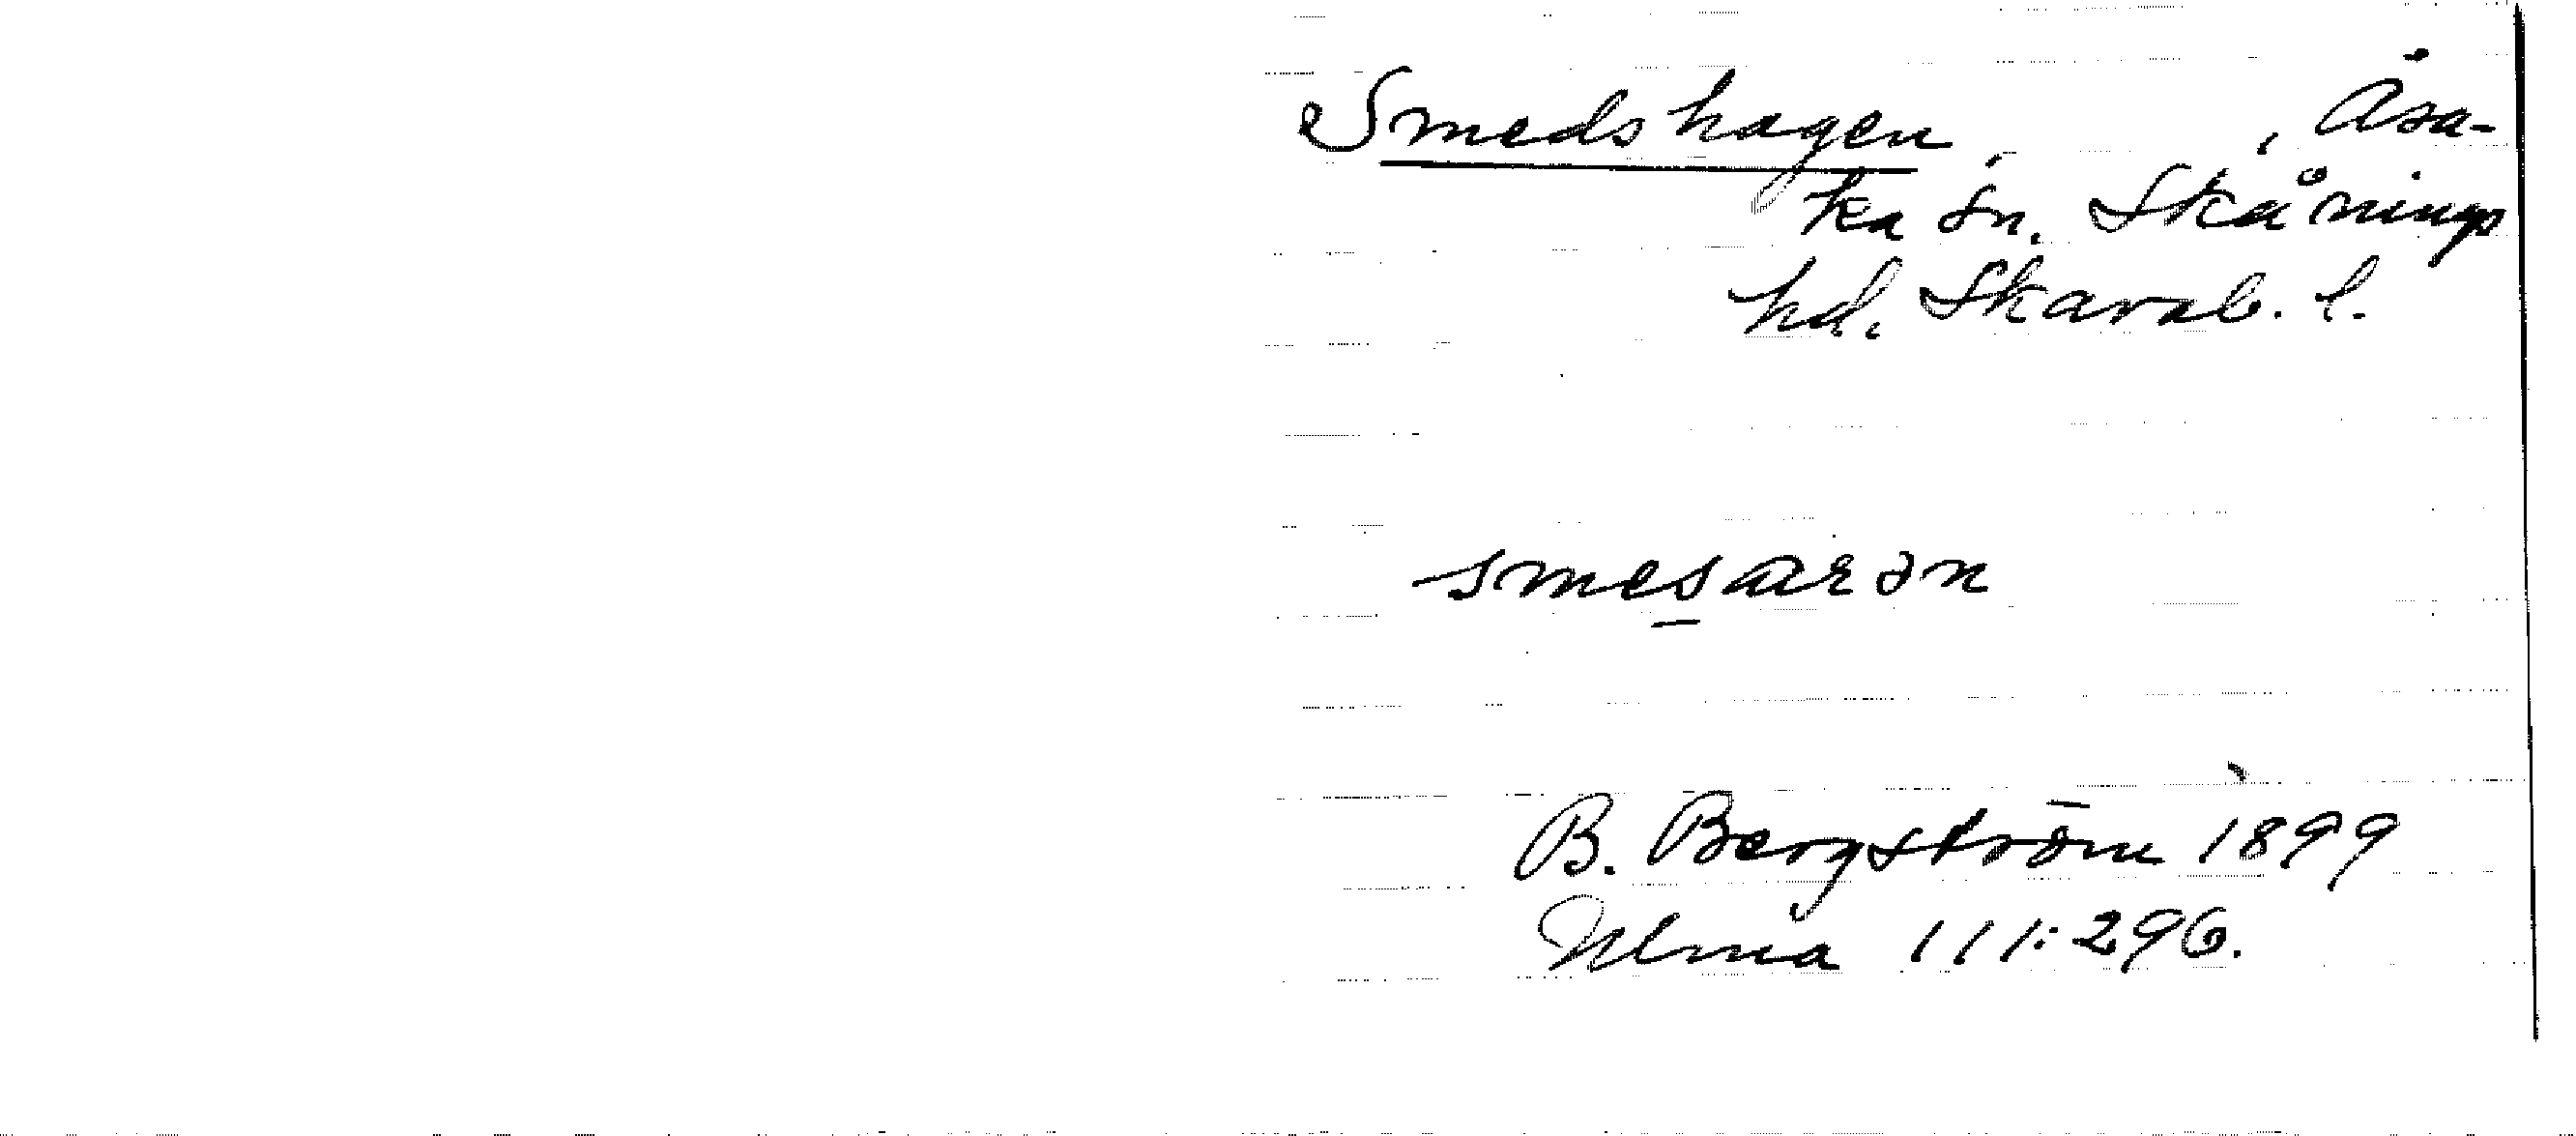 Smedshagen, , Åsa-
ka sn. Skånings
hd. Skarab. l.
B. Bergström 1899
Ulma 111:296.